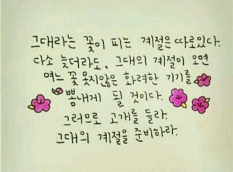 그대라는 꽃이 피는 계절은 따로있다.
다소 늦더라도, 그대의 계절이 오면
여느 꽃 못지않은 화려한 기개를
뽐내게 될 것이다.
그러므로 고개를 들라.
그대의 계절을 준비하라.